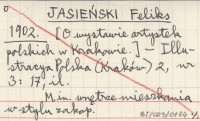 JASIEŃSKI Feliks
1902. [O wystawie artystek
polskich w Krakowie.] — Illu-
stracya Polska (Kraków) 2, nr
3 : 17, il.
M.in. wnętrze mieszkania
w stylu zakop.